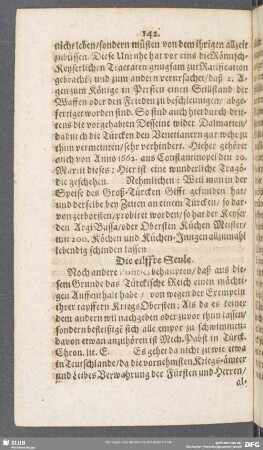 142.
nicht leben/ sondern müsten von dem ihrigen allzeit
zubüssen. Diese Unruhe hat vor eins die Römisch-
Keyserlichen Tractaten gnugsam zur Ratification
gebracht; und zum andern verursachet/ daß 2. A-
gen zum Könige in Persien einen Stilstand der
Waffen oder den Frieden zu beschleunigen/ abge-
fertiget worden sind. So sind auch hierdurch drit-
tens die vorgehabten Desseine wider Dalmatien/
dadurch die Türcken den Venetianern gar wehe zu
thun vermeinten/ sehr verhindert. Hieher gehöret
auch von Anno 1662. aus Constantinopel den 20.
Mar: ii dieses: Hier ist eine wunderliche Tragö-
die geschehen. Nehmlichen: Weil man in der
Speise des Groß-Türcken Gifft gefunden hat/
und derselbe bey Zeiten an einem Türcken/ so da-
von zerborsten/ probiret worden/ so hat der Keyser
den Argi Bassa/ oder Obersten Küchen Meister/
mit 200. Köchen und Küchen-Jungen allzumahl
lebendig schinden lassen.
Die eilffte Seule.
Noch andere behaupten/ daß aus die-
sem Grunde das Türckische Reich einen mächti-
gen Auffenthalt habe/ von wegen der Exemptio
ihrer tapffern Kriegs Obersten: Als da es keiner
dem andern wil nachgeben oder zuvor thun lassen/
sondern befleißige sich alle empor zu schwimmen:
davon etwan anzuhören ist Mich. Pabst in Türck.
Chron. lit. E. Es gehet da nicht zu wie etwa
in Teutschlande/ da die vornehmsten Kriegs-ämter
und Leibes Verwahrung der Fürsten und Herren/
al-
SLUB